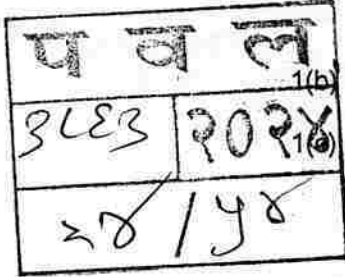 प व ल
1(b)
३८६३ २०२४
1(c)
२४ / ५४